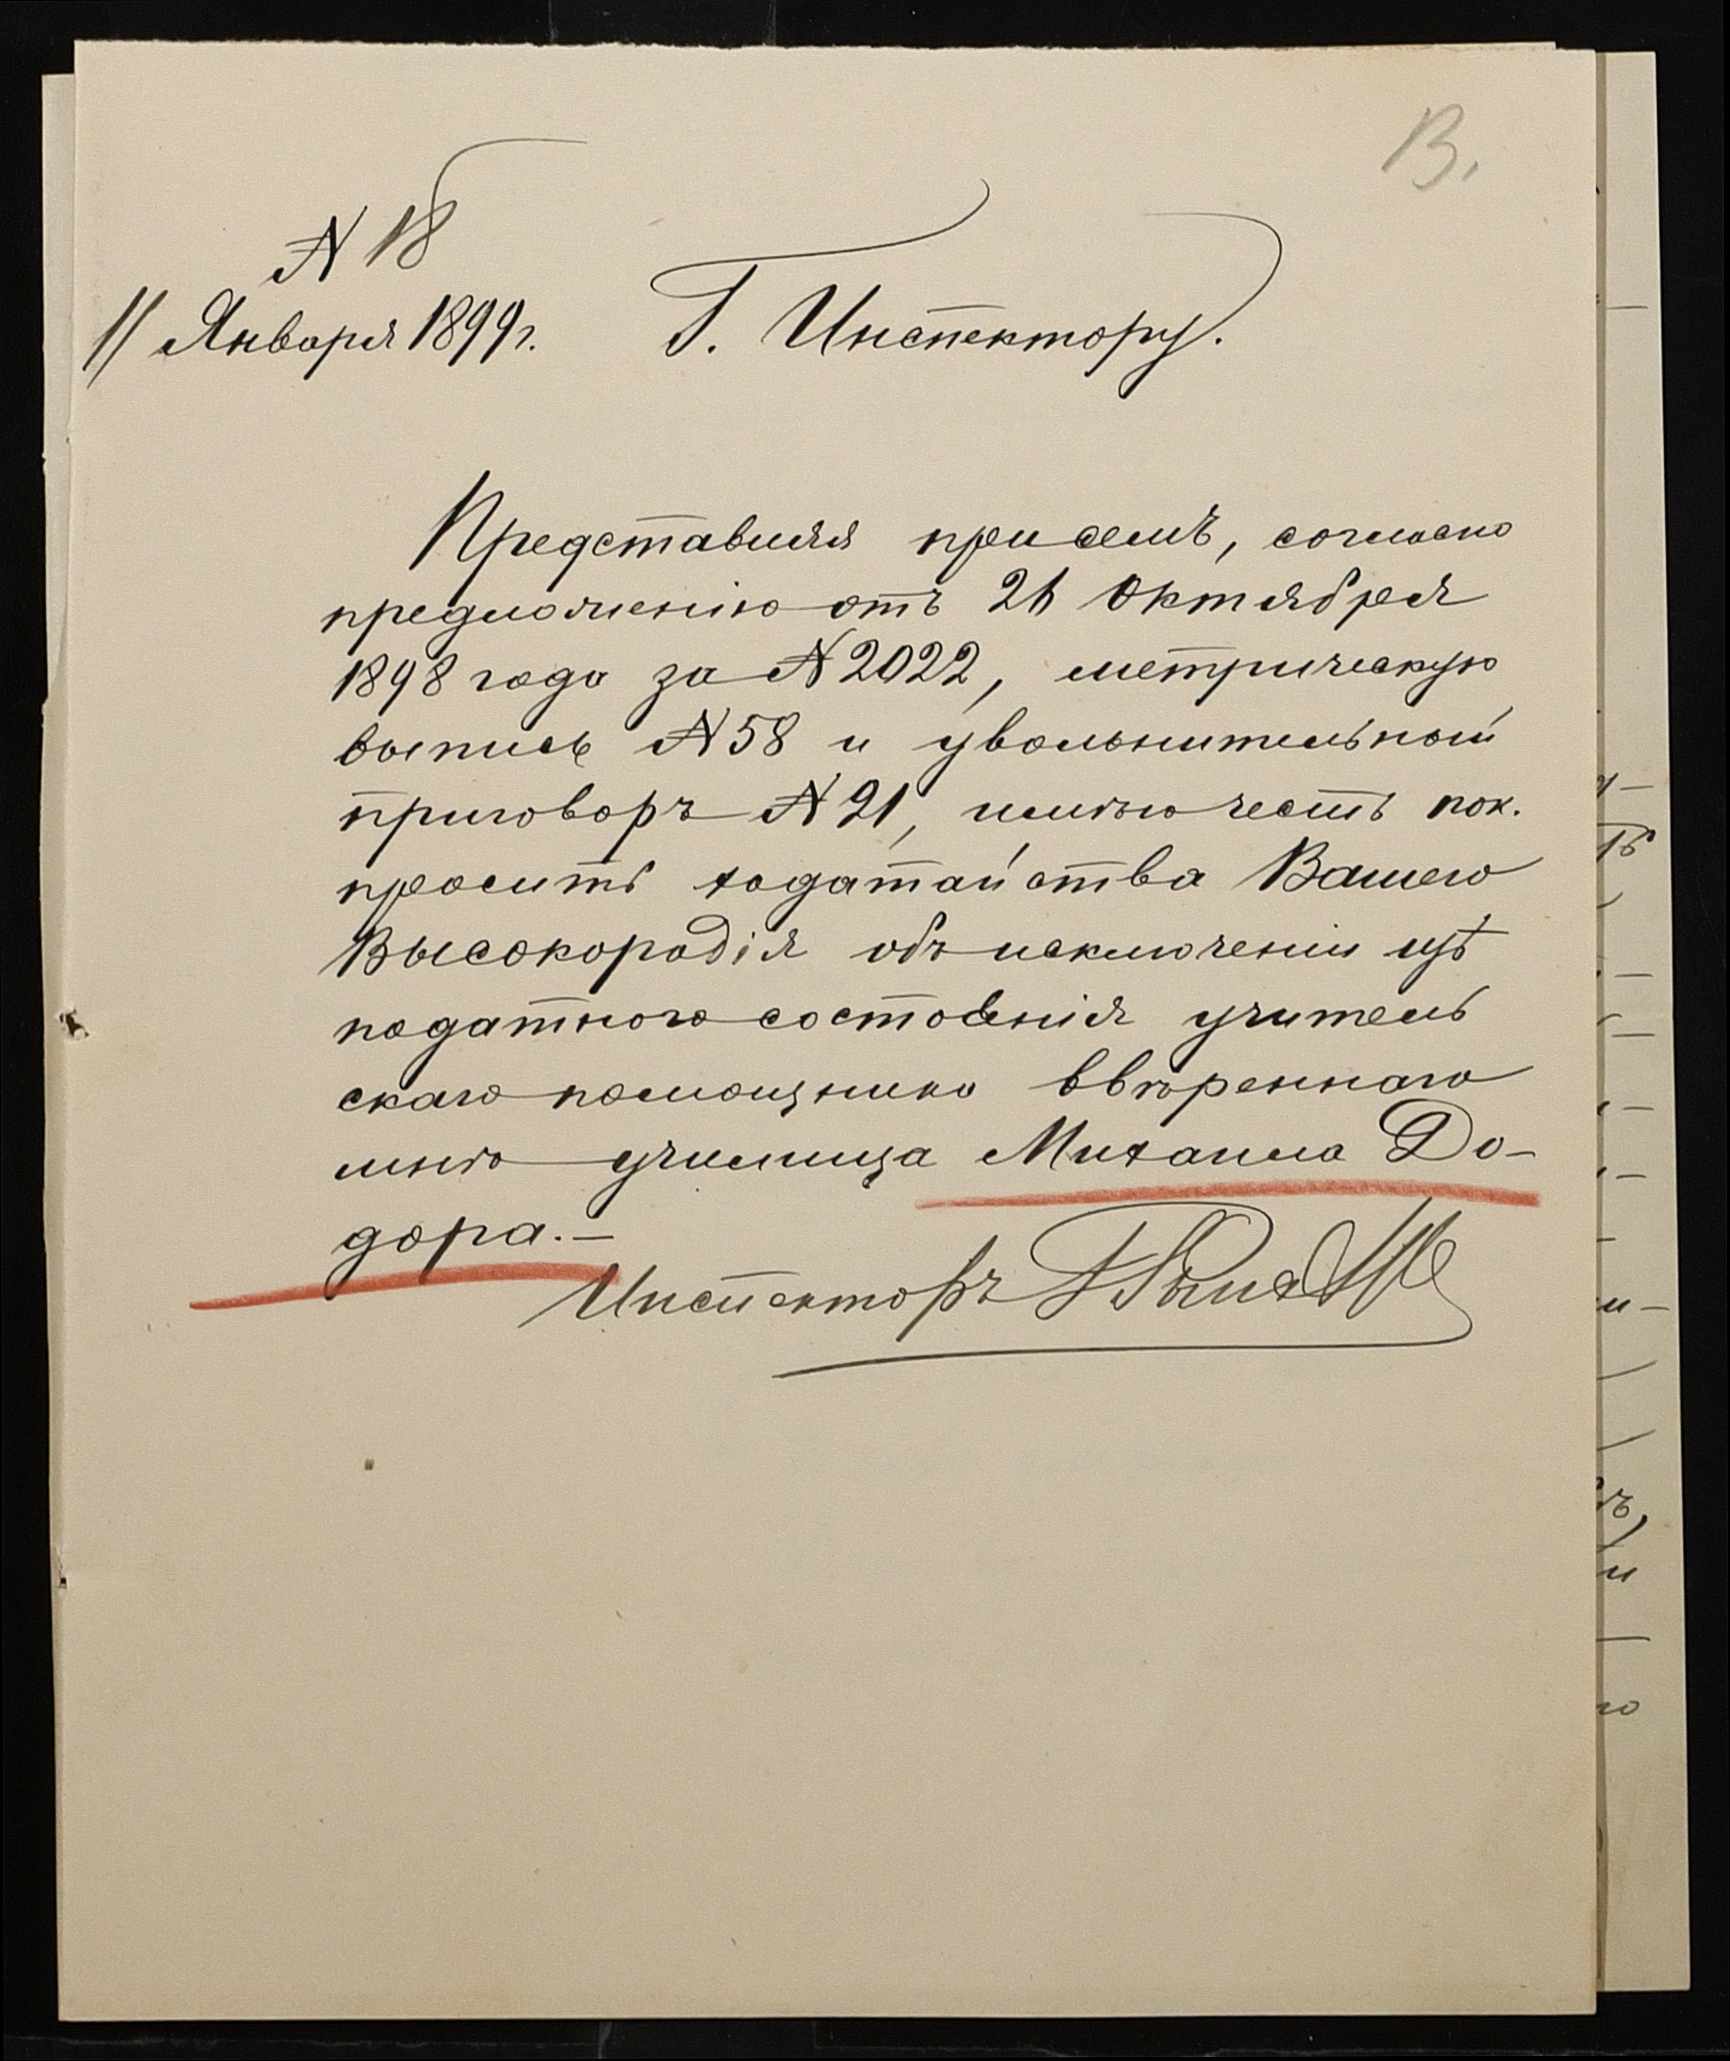 В.
№ 18
11 Января 1899 г.
Г. Инспектору.
Представляя при семъ, согласно
предложенію отъ 26 Октября
1898 года за № 2022, метрическую
выпись № 58 и увольнительный
приговоръ № 21, имѣю честь пок.
просить ходатайства Вашего
Высокородія объ исключеніи изъ
податного состоянія учитель
скаго помощника ввѣреннаго
мнѣ училища Михаила До-
дора.—
Инспекторъ